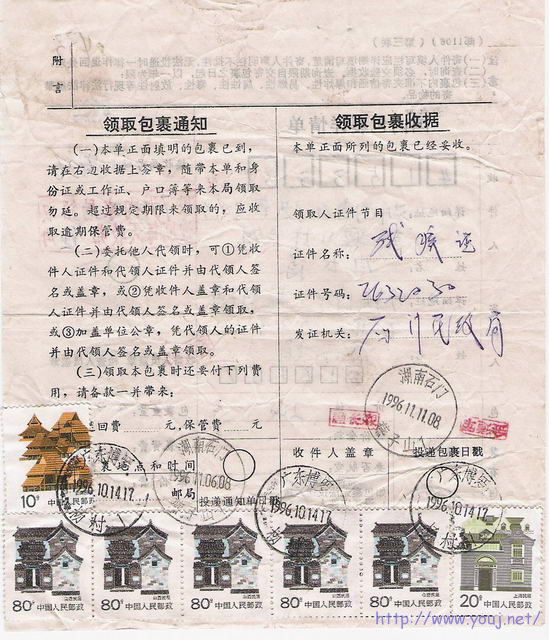 附言
领取包裹通知
(一)本单正面填明的包裹已到,
请在右边收据上签章,随带本单和身
份证或工作证、户口簿等来本局领取
勿延。超过规定期限来领取的,应收
取逾期保管费。
(二)委托他人代领时,可①凭收
件人证件和代领人证件并由代领人签
名或盖章,或②凭收件人盖章和代领
人证件并由代领人签名或盖章领取,
或③加盖单位公章,凭代领人的证件
并由代领人签名或盖章领取。
(三)领取本包裹时还要付下列费
用,请备款一并带来:
回费 元,保管费 元
裹地点和时间
邮局
投递通知单日戳
领取包裹收据
本单正面所列的包裹已经妥收。
领取人证件节目
证件名称:
证件号码:
发证机关:
收件人盖章
投递包裹日戳
湖南石门
1996.11.11.08
湖南石门
1.06.08
1996.10.14.17
广东博罗
1996.10.14.17
广东博罗
1996.10.14.17
10分 中国人民邮政
山西民居
80分 中国人民邮政
山西民居
80分 中国人民邮政
山西民居
80分 中国人民邮政
山西民居
80分 中国人民邮政
山西民居
80分 中国人民邮政
上海民居
20分 中国人民邮政
http://www.youj.net/